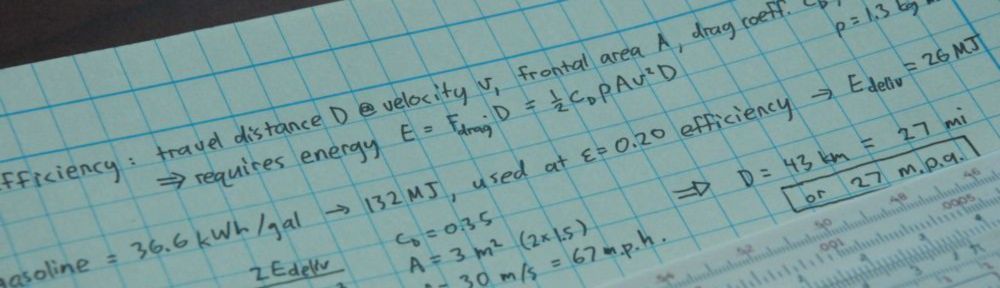 fficiency: travel distance D @ velocity v, frontal area A, drag coeff. C_D,
ρ = 1.3 kg
⇒ requires energy E = F_drag · D = ½ C_D ρ A v² D
gasoline = 36.6 kWh/gal → 132 MJ, used at ε = 0.20 efficiency → E_deliv = 26 MJ
2 E_deliv
C_D = 0.35
A = 3 m² (2×1.5)
30 m/s = 67 m.p.h.
⇒ D = 43 km = 27 mi
or 27 m.p.g.